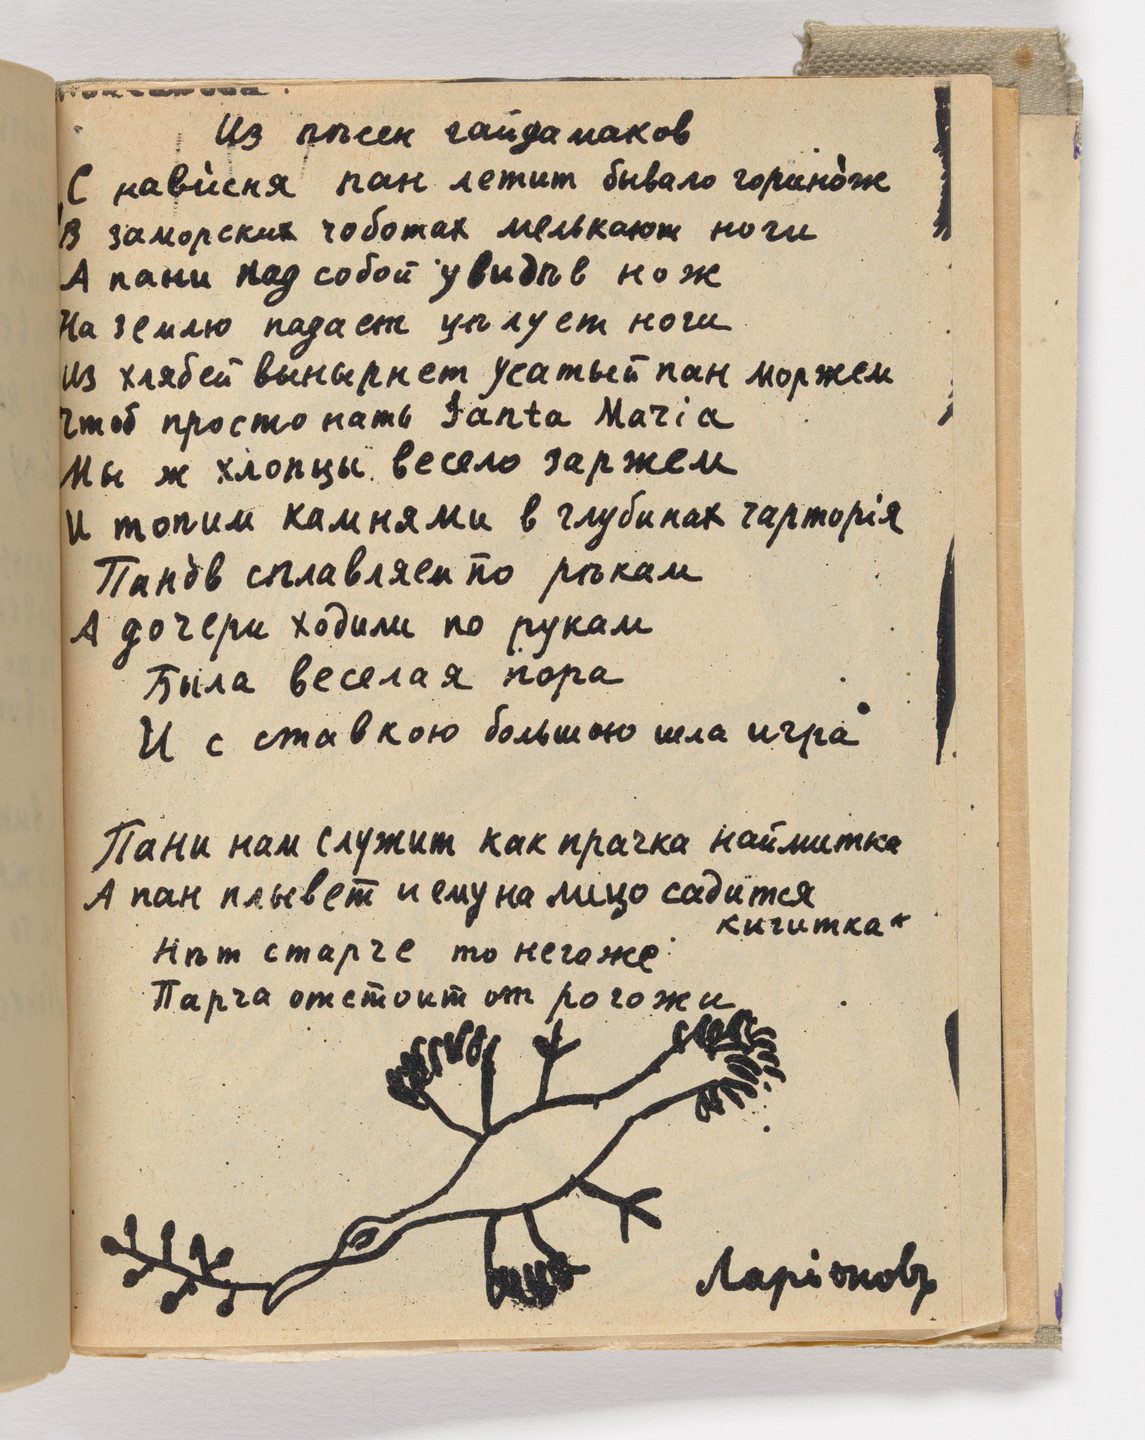 Из пѣсен гайдамаков
С нависня пан летит бывало горинож
В заморских чоботах мелькают ноги
А пани пад собой увидѣв нож
На землю падает цѣлует ноги
Из хлябей вынырнет усатый пан моржем
Чтоб простонать Santa Maria
Мы ж хлопцы весело заржем
И топим камнями в глубинах чарторія
Панов сплавляем по рѣкам
А дочери ходили по рукам
Была веселая пора
И с ставкою большою шла игра
Пани нам служит как прачка наймитка
А пан плывет и ему на лицо садится
кигитка*
Нѣт старче то негоже
Парча отстоит от рогожи
Ларіоновъ